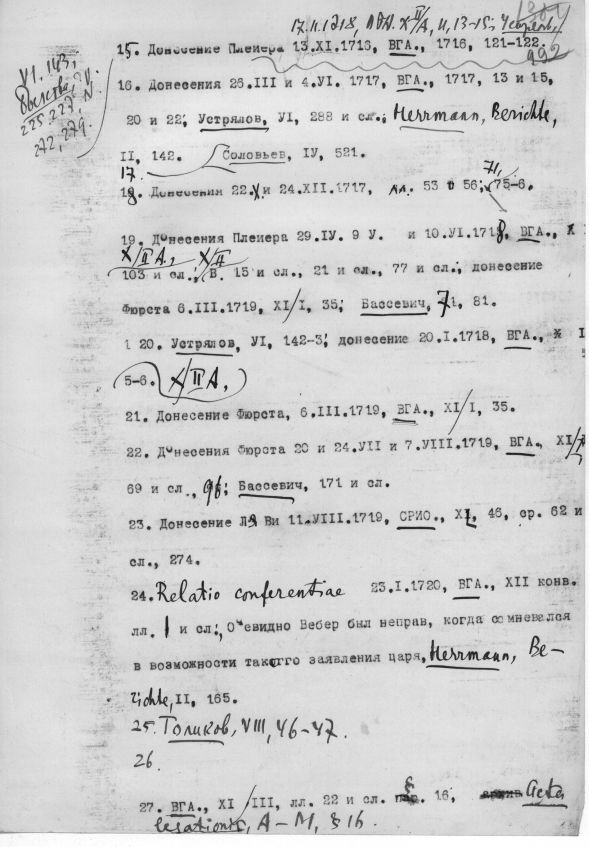 17.II.1718, X II/A,
292
VI. 143,
225. 227,
272, 279.
15. Донесение Плейера 13.XI.1716, ВГА., 1716, 121-122.
16. Донесения 26.III и 4.УІ. 1717, ВГА., 1717, 13 и 15,
20 и 22; Устрялов, УІ, 288 и сл.; Herrmann, Berichte,
II, 142. Соловьев, IУ, 521.
17.
18. Донесения 22.X и 24.XII.1717, лл. 53 и 56; 71, 75-6.
19. Донесения Плейера 29.IУ. 9 У. и 10.УІ.1718. ВГА., X I
X/II A., X/II
103 и сл.; В. 15 и сл., 21 и сл., 77 и сл.; донесение
Фюрста 6.III.1719, XI/I, 35; Бассевич, 71, 81.
20. Устрялов, УІ, 142-3; донесение 20.I.1718, ВГА., X I
5-6. X/II A,
21. Донесение Фюрста, 6.III.1719, ВГА., XI/I, 35.
22. Донесения Фюрста 20 и 24.УІІ и 7.УІІІ.1719, ВГА., XI/
69 и сл., 96; Бассевич, 171 и сл.
23. Донесение Ла Ви 11.УІІІ.1719, СРИО., XL, 46, ср. 62 и
сл., 274.
24. Relatio conferentiae 23.I.1720, ВГА., XII конв.
лл. 1 и сл.; Очевидно Вебер был неправ, когда сомневался
в возможности такого заявления царя, Herrmann, Be-
richte, II, 165.
25. Голиков, VIII, 46-47.
26.
27. ВГА., XI/III, лл. 22 и сл. § 16, Acta
legationis, A-M, § 16.